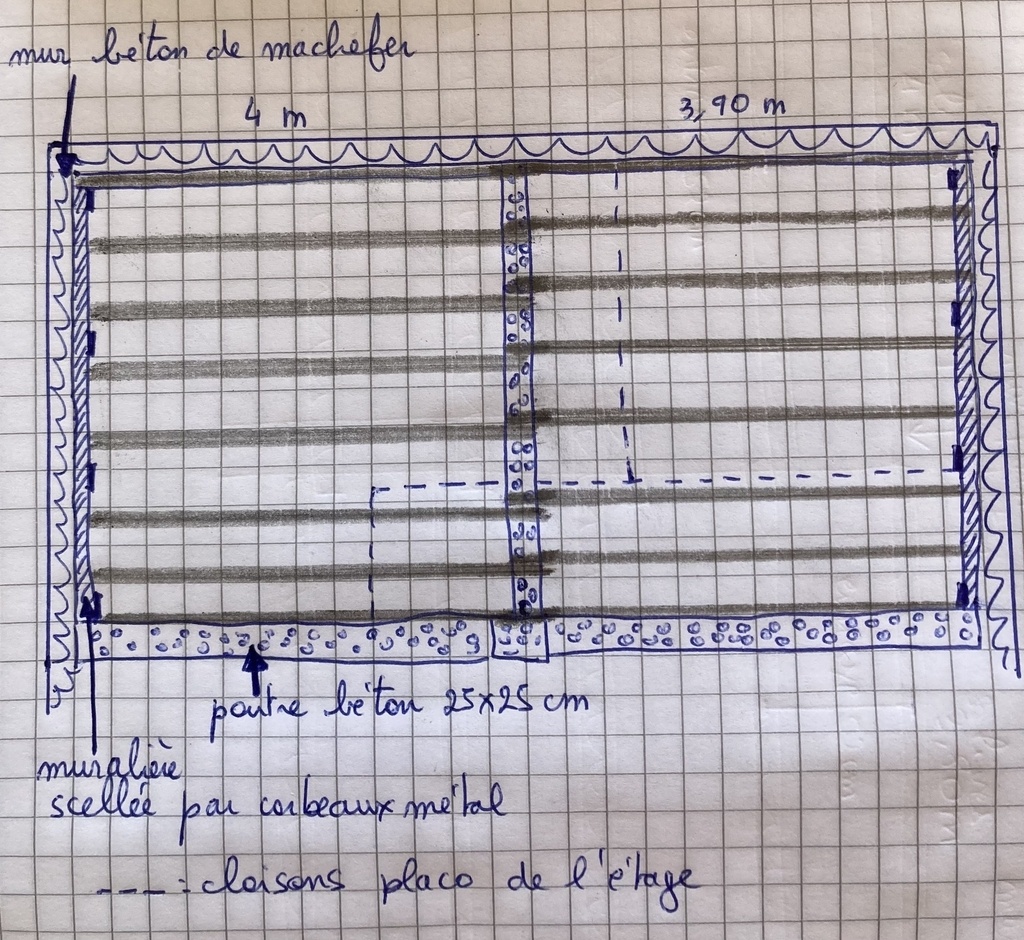 mur béton de machefer
4 m
3,90 m
poutre béton 25x25 cm
muralière
scellée par corbeaux métal
---- : cloisons placo de l'étage